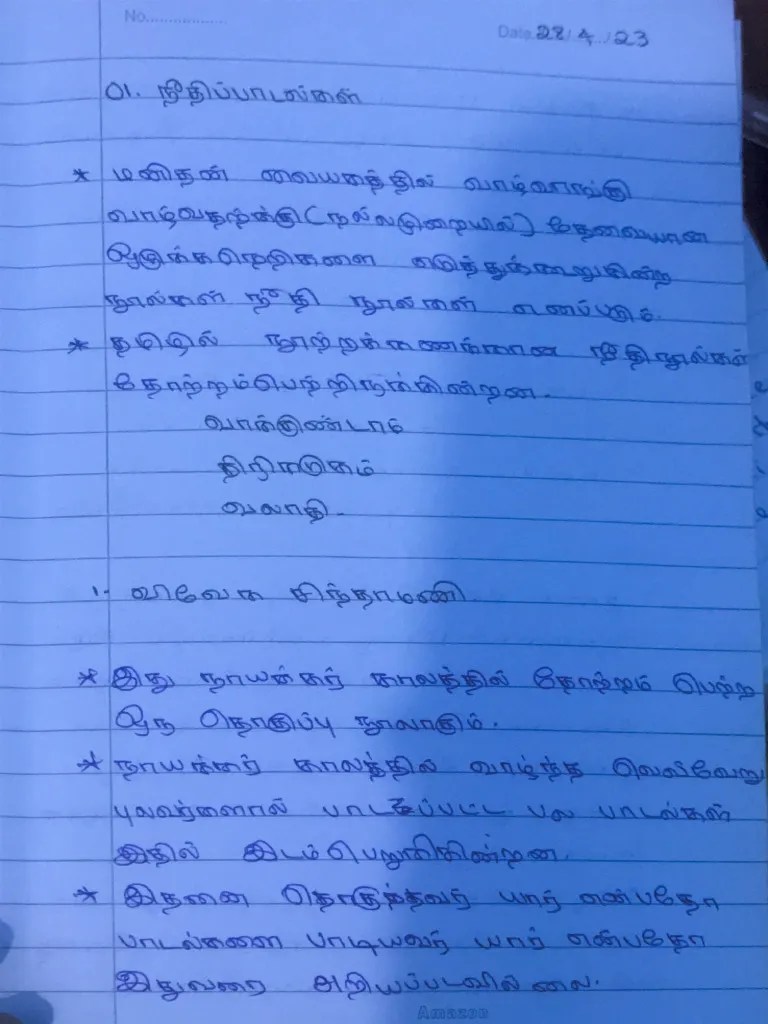 No.................
Date 28/4../23
01. நீதிப்பாடல்கள்
* மனிதன் வையகத்தில் வாழ்வாங்கு
வாழ்வதற்க்கு (நல்லமுறையில்) தேவையான
ஒழுக்கநெறிகளை எடுத்துக்கூறுகின்ற
நூல்கள் நீதி நூல்கள் எனப்படும்.
* தமிழில் நூற்றுக்கணக்கான நீதிநூல்கள்
தோற்றம்பெற்றிருக்கின்றன.
வாக்குண்டாம்
திரிகடுகம்
1. விவேக சிந்தாமணி
* இது நாயக்கர் காலத்தில் தோற்றம் பெற்ற
ஒரு தொகுப்பு நூலாகும்.
* நாயக்கர் காலத்தில் வாழ்ந்த வெவ்வேறு
புலவர்களால் பாடப்பட்ட பல பாடல்கள்
இதில் இடம்பெறுகின்றன.
* இதனை தொகுத்தவர் யார் என்பதோ
பாடல்களை பாடியவர் யார் என்பதோ
இதுவரை அறியப்படவில்லை.
Amazon